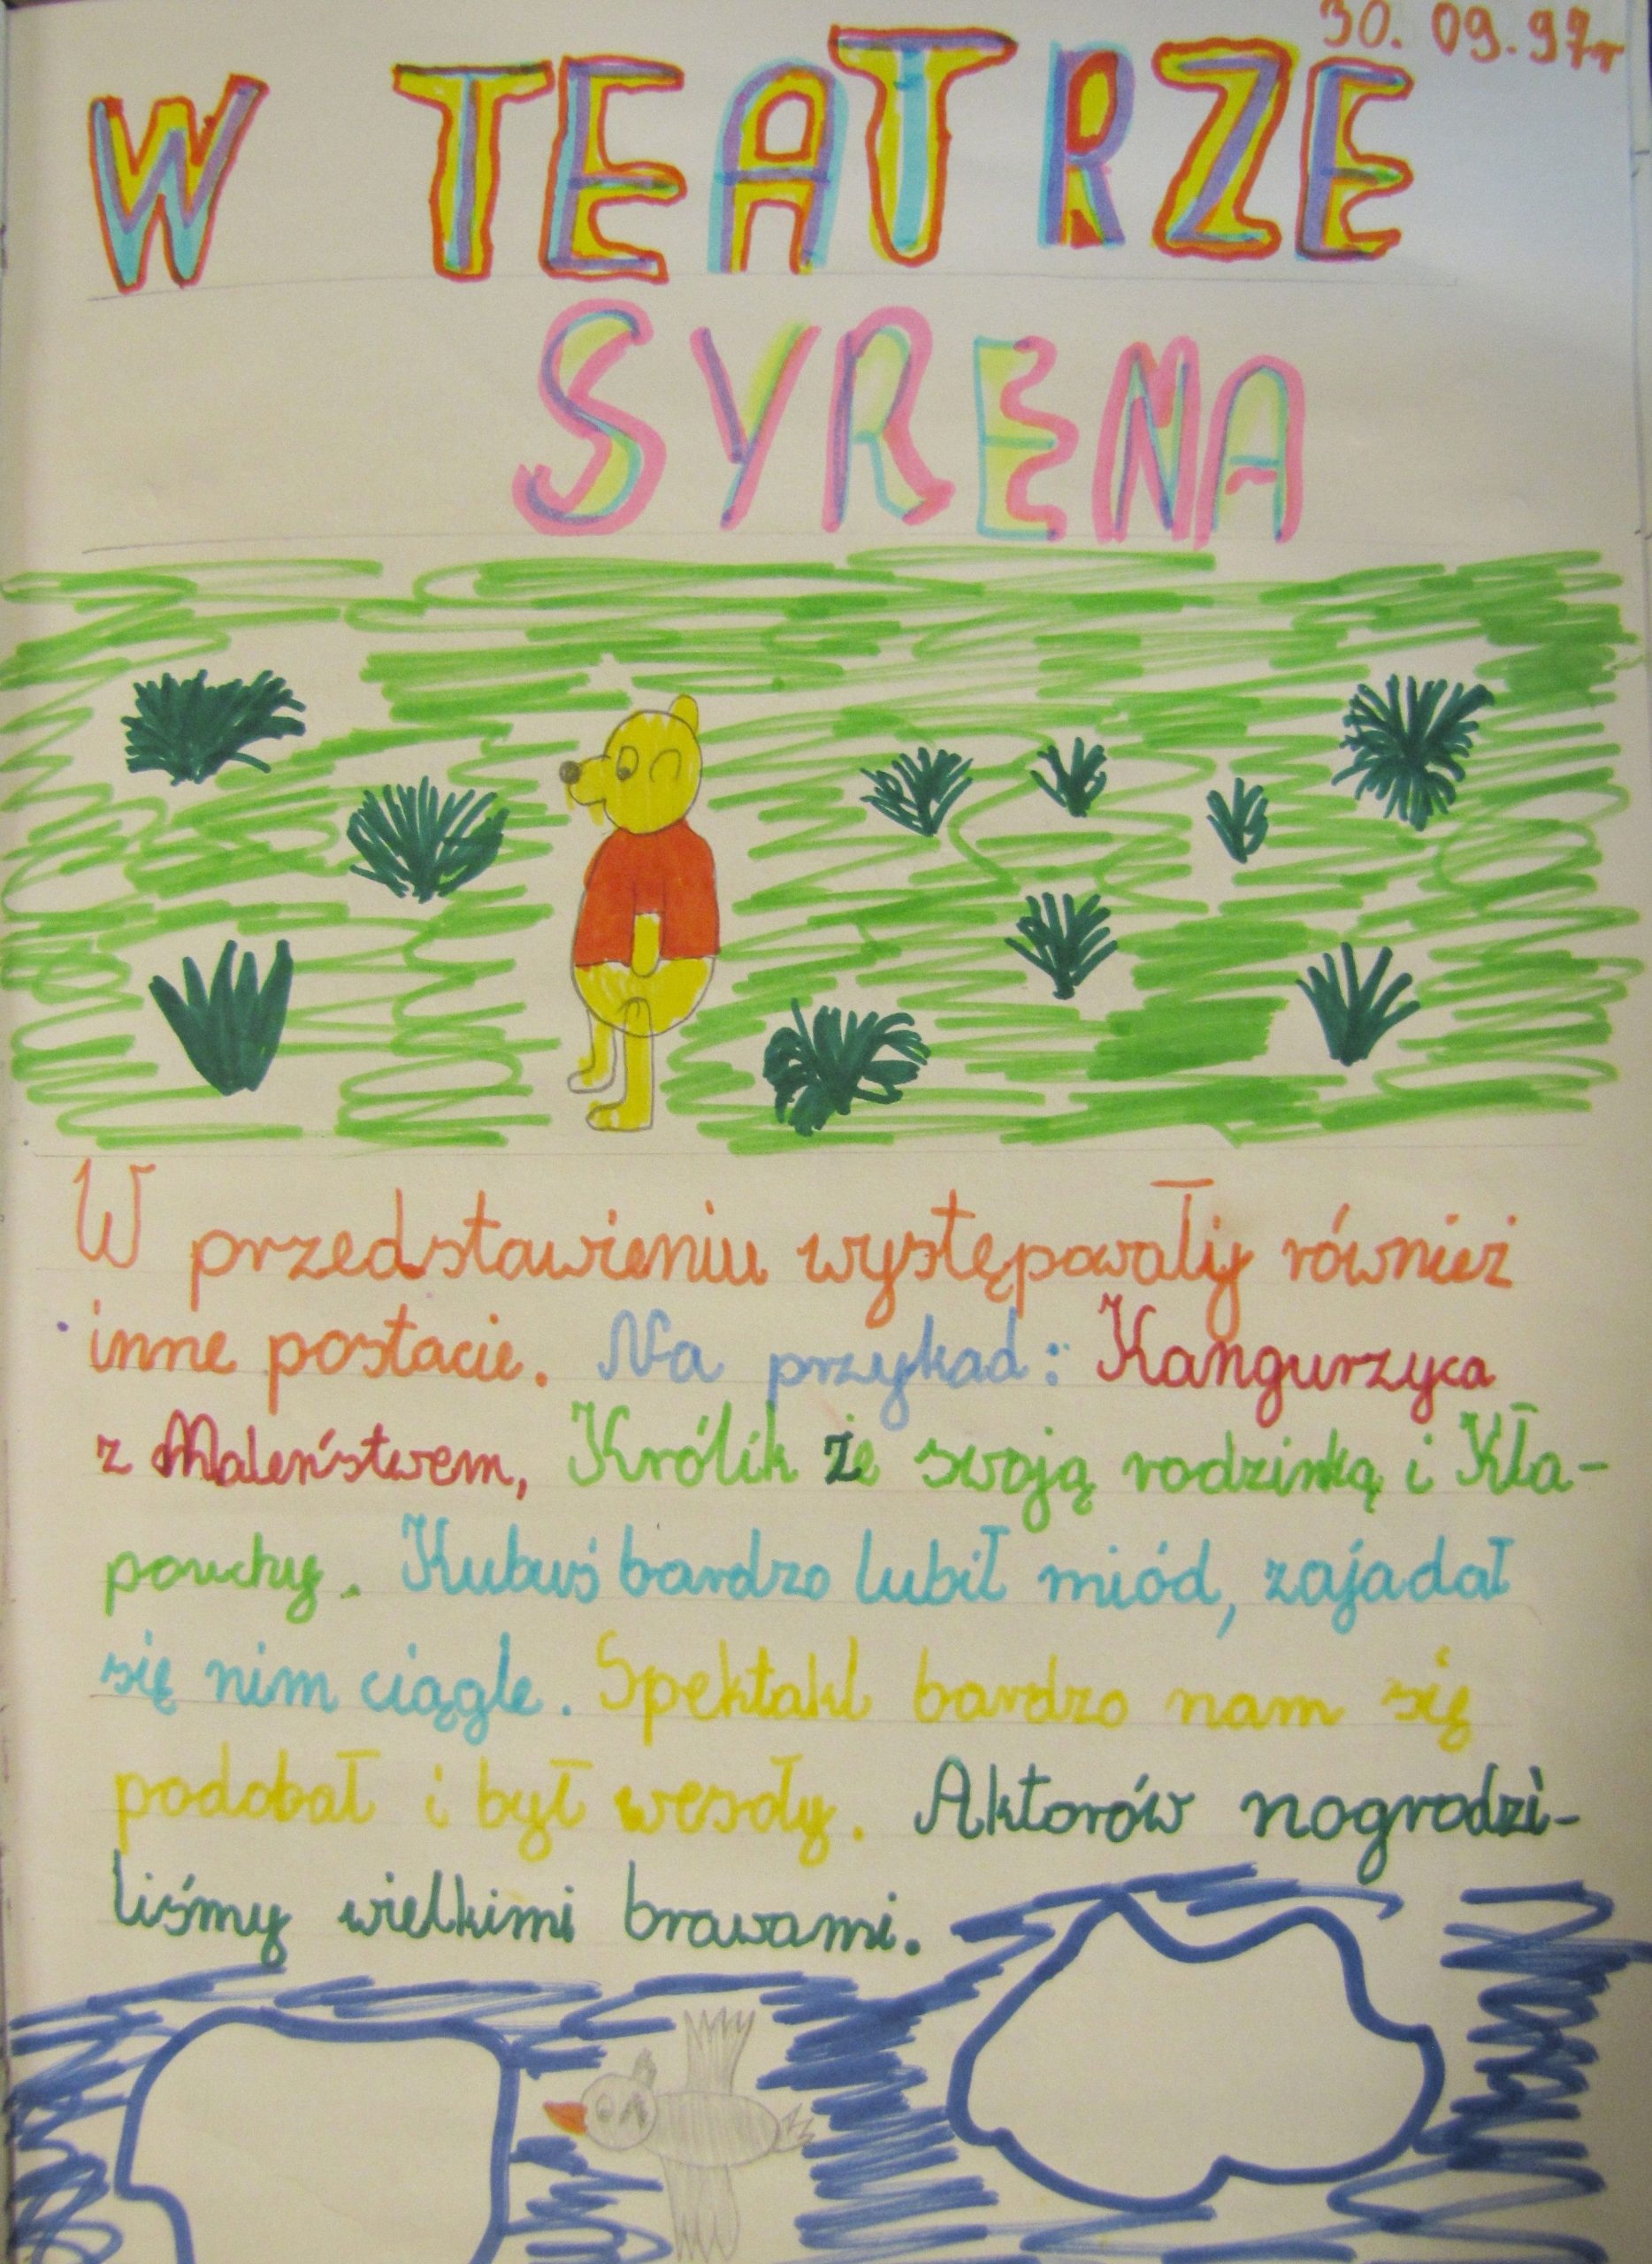 30. 09. 97r
W TEATRZE
SYRENA
W przedstawieniu występowały również
inne postacie. Na przykad: Kangurzyca
z Maleństwem, Królik ze swoją rodzinką i Kła-
pouchy. Kubuś bardzo lubił miód, zajadał
się nim ciągle. Spektakl bardzo nam się
podobał i był wesoły. Aktorów nogrodzi-
liśmy wielkimi brawami.